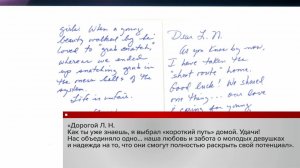 girls. When a young
beauty walked by he
loved to "yell snatch!"
whenever we ended
up snatching yet in
the more halls of the
system.
Life is unfair.
Dear L. N.
As you know by now,
I have taken the
"short route" home.
Good luck! We shared
one thing... our love
«Дорогой Л. Н.
Как ты уже знаешь, я выбрал «короткий путь» домой. Удачи!
Нас объединяло одно... наша любовь и забота о молодых девушках
и надежда на то, что они смогут полностью раскрыть свой потенциал».